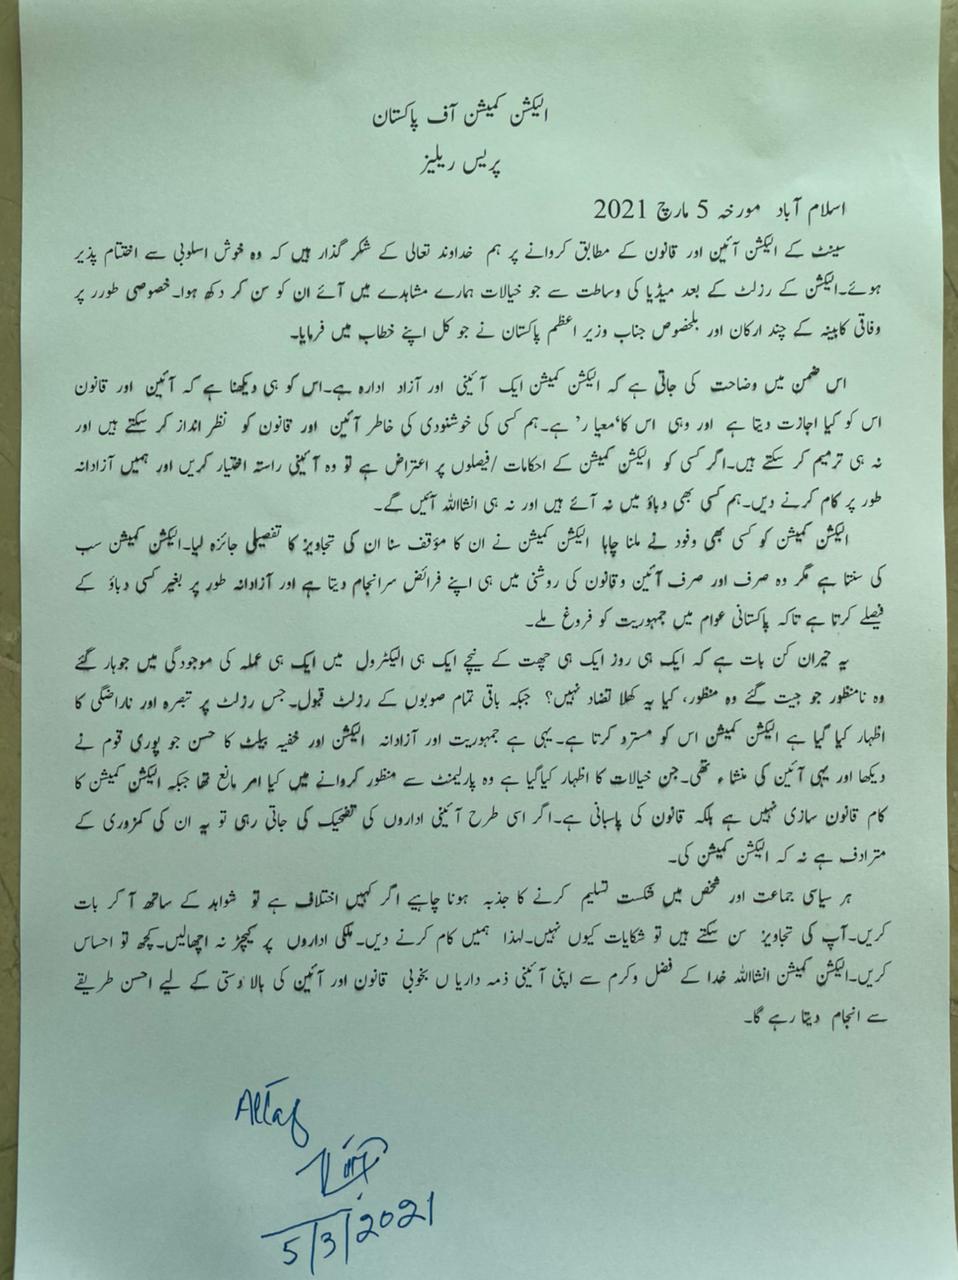 الیکشن کمیشن آف پاکستان
پریس ریلیز
اسلام آباد مورخہ 5 مارچ 2021
سینٹ کے الیکشن آئین اور قانون کے مطابق کروانے پر ہم خداوند تعالی کے شکر گذار ہیں کہ وہ خوش اسلوبی سے اختتام پذیر
ہوئے۔الیکشن کے رزلٹ کے بعد میڈیا کی وساطت سے جو خیالات ہمارے مشاہدے میں آئے ان کو سن کر دکھ ہوا۔خصوصی طورر پر
وفاقی کابینہ کے چند ارکان اور بلخصوص جناب وزیر اعظم پاکستان نے جو کل اپنے خطاب میں فرمایا۔
اس ضمن میں وضاحت کی جاتی ہے کہ الیکشن کمیشن ایک آئینی اور آزاد ادارہ ہے۔اس کو ہی دیکھنا ہے کہ آئین اور قانون
اس کو کیا اجازت دیتا ہے اور وہی اس کا‘معیا ر’ ہے۔ہم کسی کی خوشنودی کی خاطر آئین اور قانون کو نظر انداز کر سکتے ہیں اور
نہ ہی ترمیم کر سکتے ہیں۔اگر کسی کو الیکشن کمیشن کے احکامات /فیصلوں پر اعتراض ہے تو وہ آئینی راستہ اختیار کریں اور ہمیں آزادانہ
طور پر کام کرنے دیں۔ہم کسی بھی دباؤ میں نہ آئے ہیں اور نہ ہی انشااللہ آئیں گے۔
الیکشن کمیشن کو کسی بھی وفود نے ملنا چاہا الیکشن کمیشن نے ان کا مؤقف سنا ان کی تجاویز کا تفصیلی جائزہ لیا۔الیکشن کمیشن سب
کی سنتا ہے مگر وہ صرف اور صرف آئین وقانون کی روشنی میں ہی اپنے فرائض سرانجام دیتا ہے اور آزادانہ طور پر بغیر کسی دباؤ کے
فیصلے کرتا ہے تاکہ پاکستانی عوام میں جمہوریت کو فروغ ملے۔
یہ حیران کن بات ہے کہ ایک ہی روز ایک ہی چھت کے نیچے ایک ہی الیکٹرول میں ایک ہی عملہ کی موجودگی میں جوہار گئے
وہ نامنظور جو جیت گئے وہ منظور، کیا یہ کھلا تضاد نہیں؟ جبکہ باقی تمام صوبوں کے رزلٹ قبول۔جس رزلٹ پر تبصرہ اور ناراضگی کا
اظہار کیا گیا ہے الیکشن کمیشن اس کو مسترد کرتا ہے۔یہی ہے جمہوریت اور آزادانہ الیکشن اور خفیہ بیلٹ کا حسن جو پوری قوم نے
دیکھا اور یہی آئین کی منشاء تھی۔جن خیالات کا اظہار کیاگیا ہے وہ پارلیمنٹ سے منظور کروانے میں کیا امر مانع تھا جبکہ الیکشن کمیشن کا
کام قانون سازی نہیں ہے بلکہ قانون کی پاسبانی ہے۔اگر اسی طرح آئینی اداروں کی تضحیک کی جاتی رہی تو یہ ان کی کمزوری کے
مترادف ہے نہ کہ الیکشن کمیشن کی۔
ہر سیاسی جماعت اور شخص میں شکست تسلیم کرنے کا جذبہ ہونا چاہیے اگر کہیں اختلاف ہے تو شواہد کے ساتھ آ کر بات
کریں۔آپ کی تجاویز سن سکتے ہیں تو شکایات کیوں نہیں۔لہذا ہمیں کام کرنے دیں۔ملکی اداروں پر کیچڑ نہ اچھالیں۔کچھ تو احساس
کریں۔الیکشن کمیشن انشااللہ خدا کے فضل وکرم سے اپنی آئینی ذمہ داریا ں بخوبی قانون اور آئین کی بالا دستی کے لیے احسن طریقے
سے انجام دیتا رہے گا۔
Altaf
5/3/2021